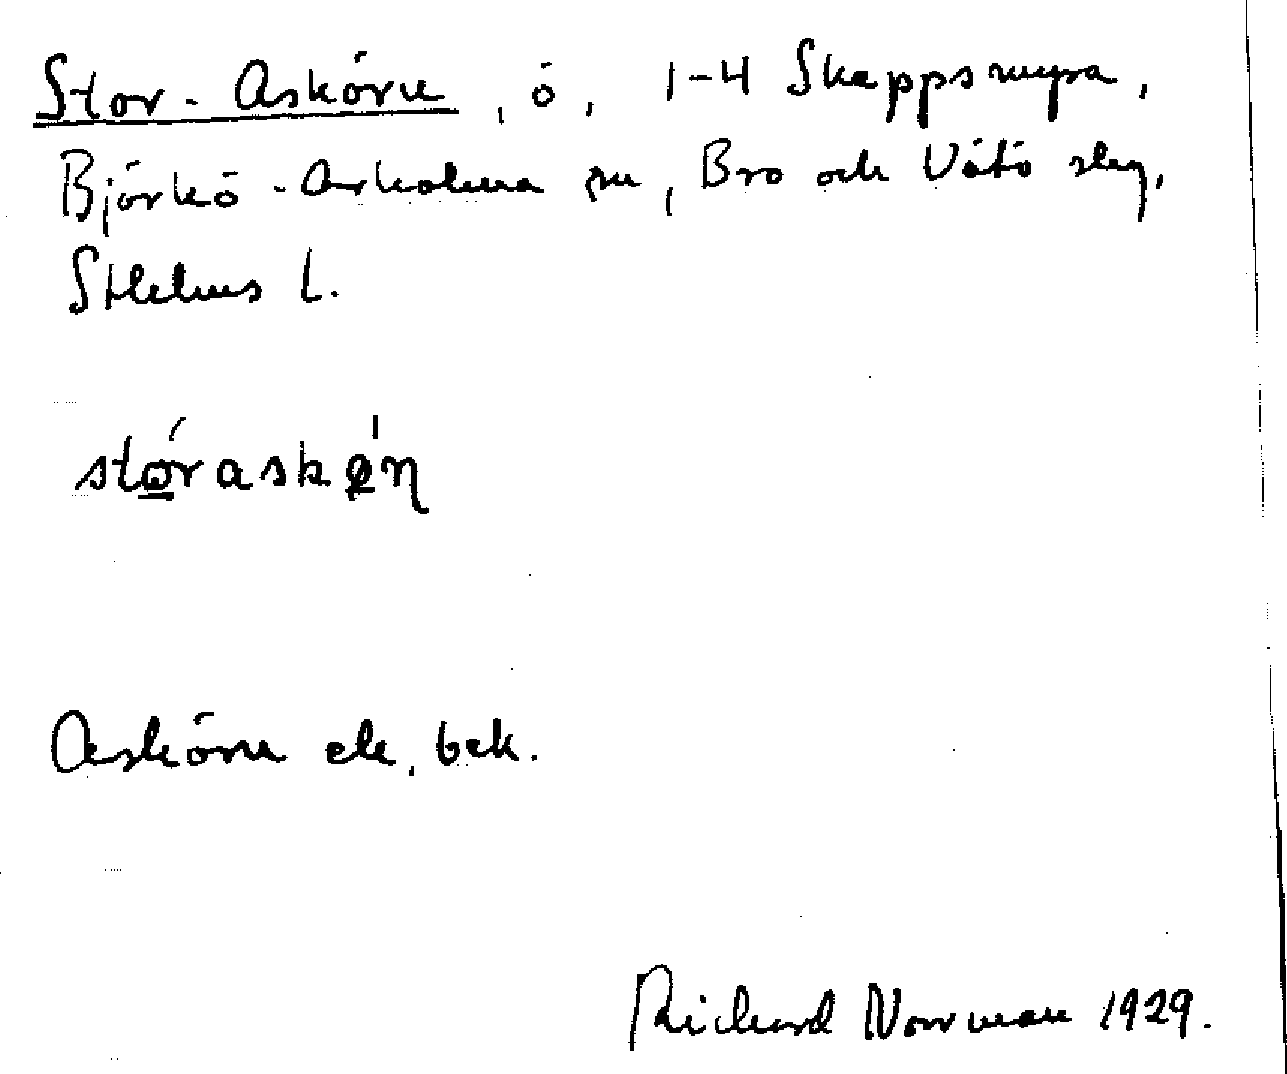 Stor-Askörn, ö, 1-4 Skeppsmyra,
Björkö-Arholma sn, Bro och Vätö slg,
Sthlms l.
Askörn ek. bek.
Richard Norrman 1929.